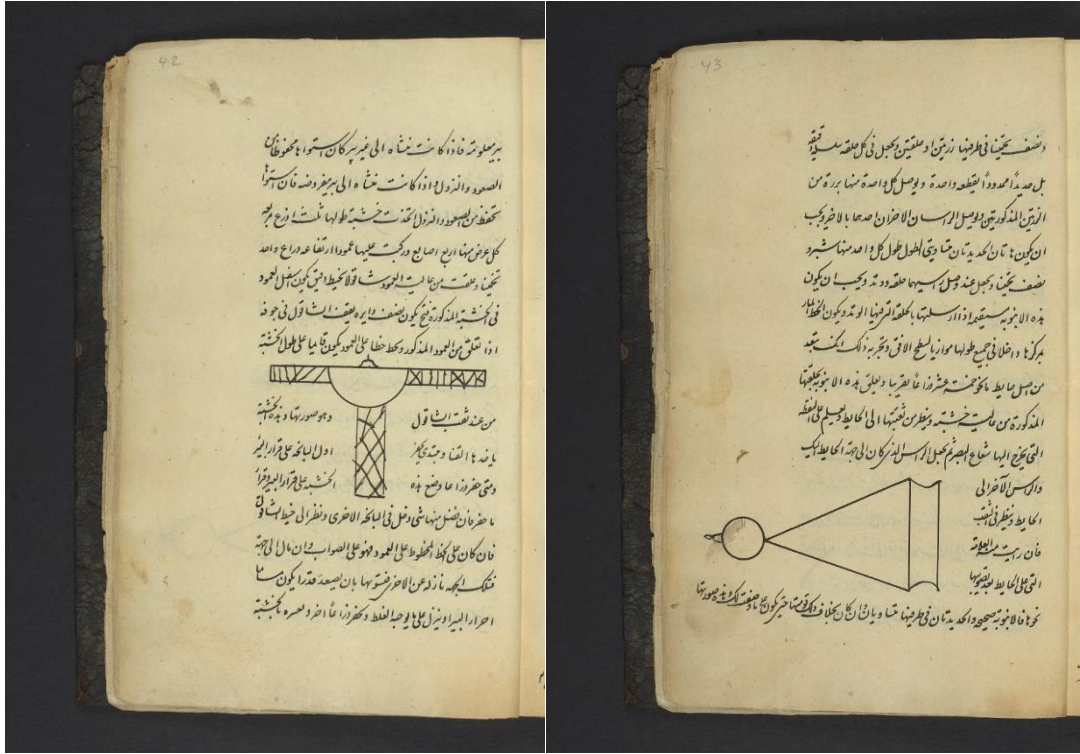 42
بير معلومة فاذا كانت منشاه الى غير بير كان استواها محفوظا من
الصعود والنزول واذا كانت منشاه الى بير مفروضه فان استوا
تحفظ من الصعود والنزول اتخذت خشبة طولها ثلث اذرع مربعه
كل عرض منها اربع اصابع وركبت عليها عمودا ارتفاعه ذراع واحد
تخينا وعلقت من عالية العمود شاقولا بخيط دقيق يكون اسفل العمود
فى الخشبة المذكورة فتح يكون نصف دايره يقف الشاقول فى جوفه
اذا تعلق من العمود المذكور وتخط خطا على العمود يكون قايما على طول الخشبة
من عند ثقب الشاقول وهو صورتها وهذه الخشبة
ياخذها القنا ويبتدى بحفر اول البالخه على قرار البير
ومتى حفر ذراعا وضع هذه الخشبة على قرار البير وقرار
ما حفر فان فضل منها شى دخل فى البالخه الاخرى ونظر الى خيط الشاقول
فان كان على الخط المخطوط على العمود فهو على الصواب وان مال الى جهة
فتلك الجهه نازله عن الاخرى فتسويها بان يصعد قدرا يكون
احرار البير او ينزل على ما يوجبه الغلط ويحفر ذراعا اخر ويعبره بالخشبة
43
ونصف تخينا فى طرفيها زرتين او حلقتين ويجعل فى كل حلقه سلسلة دقيقه
بل حديدا ممدودا بقطعه واحدة ويوصل كل واحدة منها بزرة من
الزرتين المذكورتين ويوصل الراسان الاخران احدهما بالاخر ويجب
ان يكون هاتان الحديدتان متساويتى الطول طول كل واحد منها شبر و
نصف تخينا ويجعل عند وصل راسيهما حلقه ووتد ويجب ان يكون
هذه الانبوبه مستقيمه اذا ارسلتها بالحلقه التى فيها الوتد ويكون الخط المار
بمركزها داخلا فى جميع طولها موازيا لسطح الافق وتجربه ذلك انك تبعد
من اصل حايط ما نحو خمسة عشر ذراعا تقريبا ويعلق هذه الانبوبه بحلقتها
المذكورة من عالية خشبة وينظر من ثقبتها الى الحايط ويعلم على النقطه
التى يخرج اليها شعاع البصر ثم يجعل الراس الذى كان الى جهة الحايط اليك
والراس الآخر الى
الحايط وينظر فى الثقب
فان رايت من العلامة
التى على الحايط بعد تصويبها
نحوها فالانبوبه صحيحه والحديدتان فى طرفيها متساويان وان كان بخلاف ذلك قومتها حتى يكون على ما وصفت لك وهذه صورتها